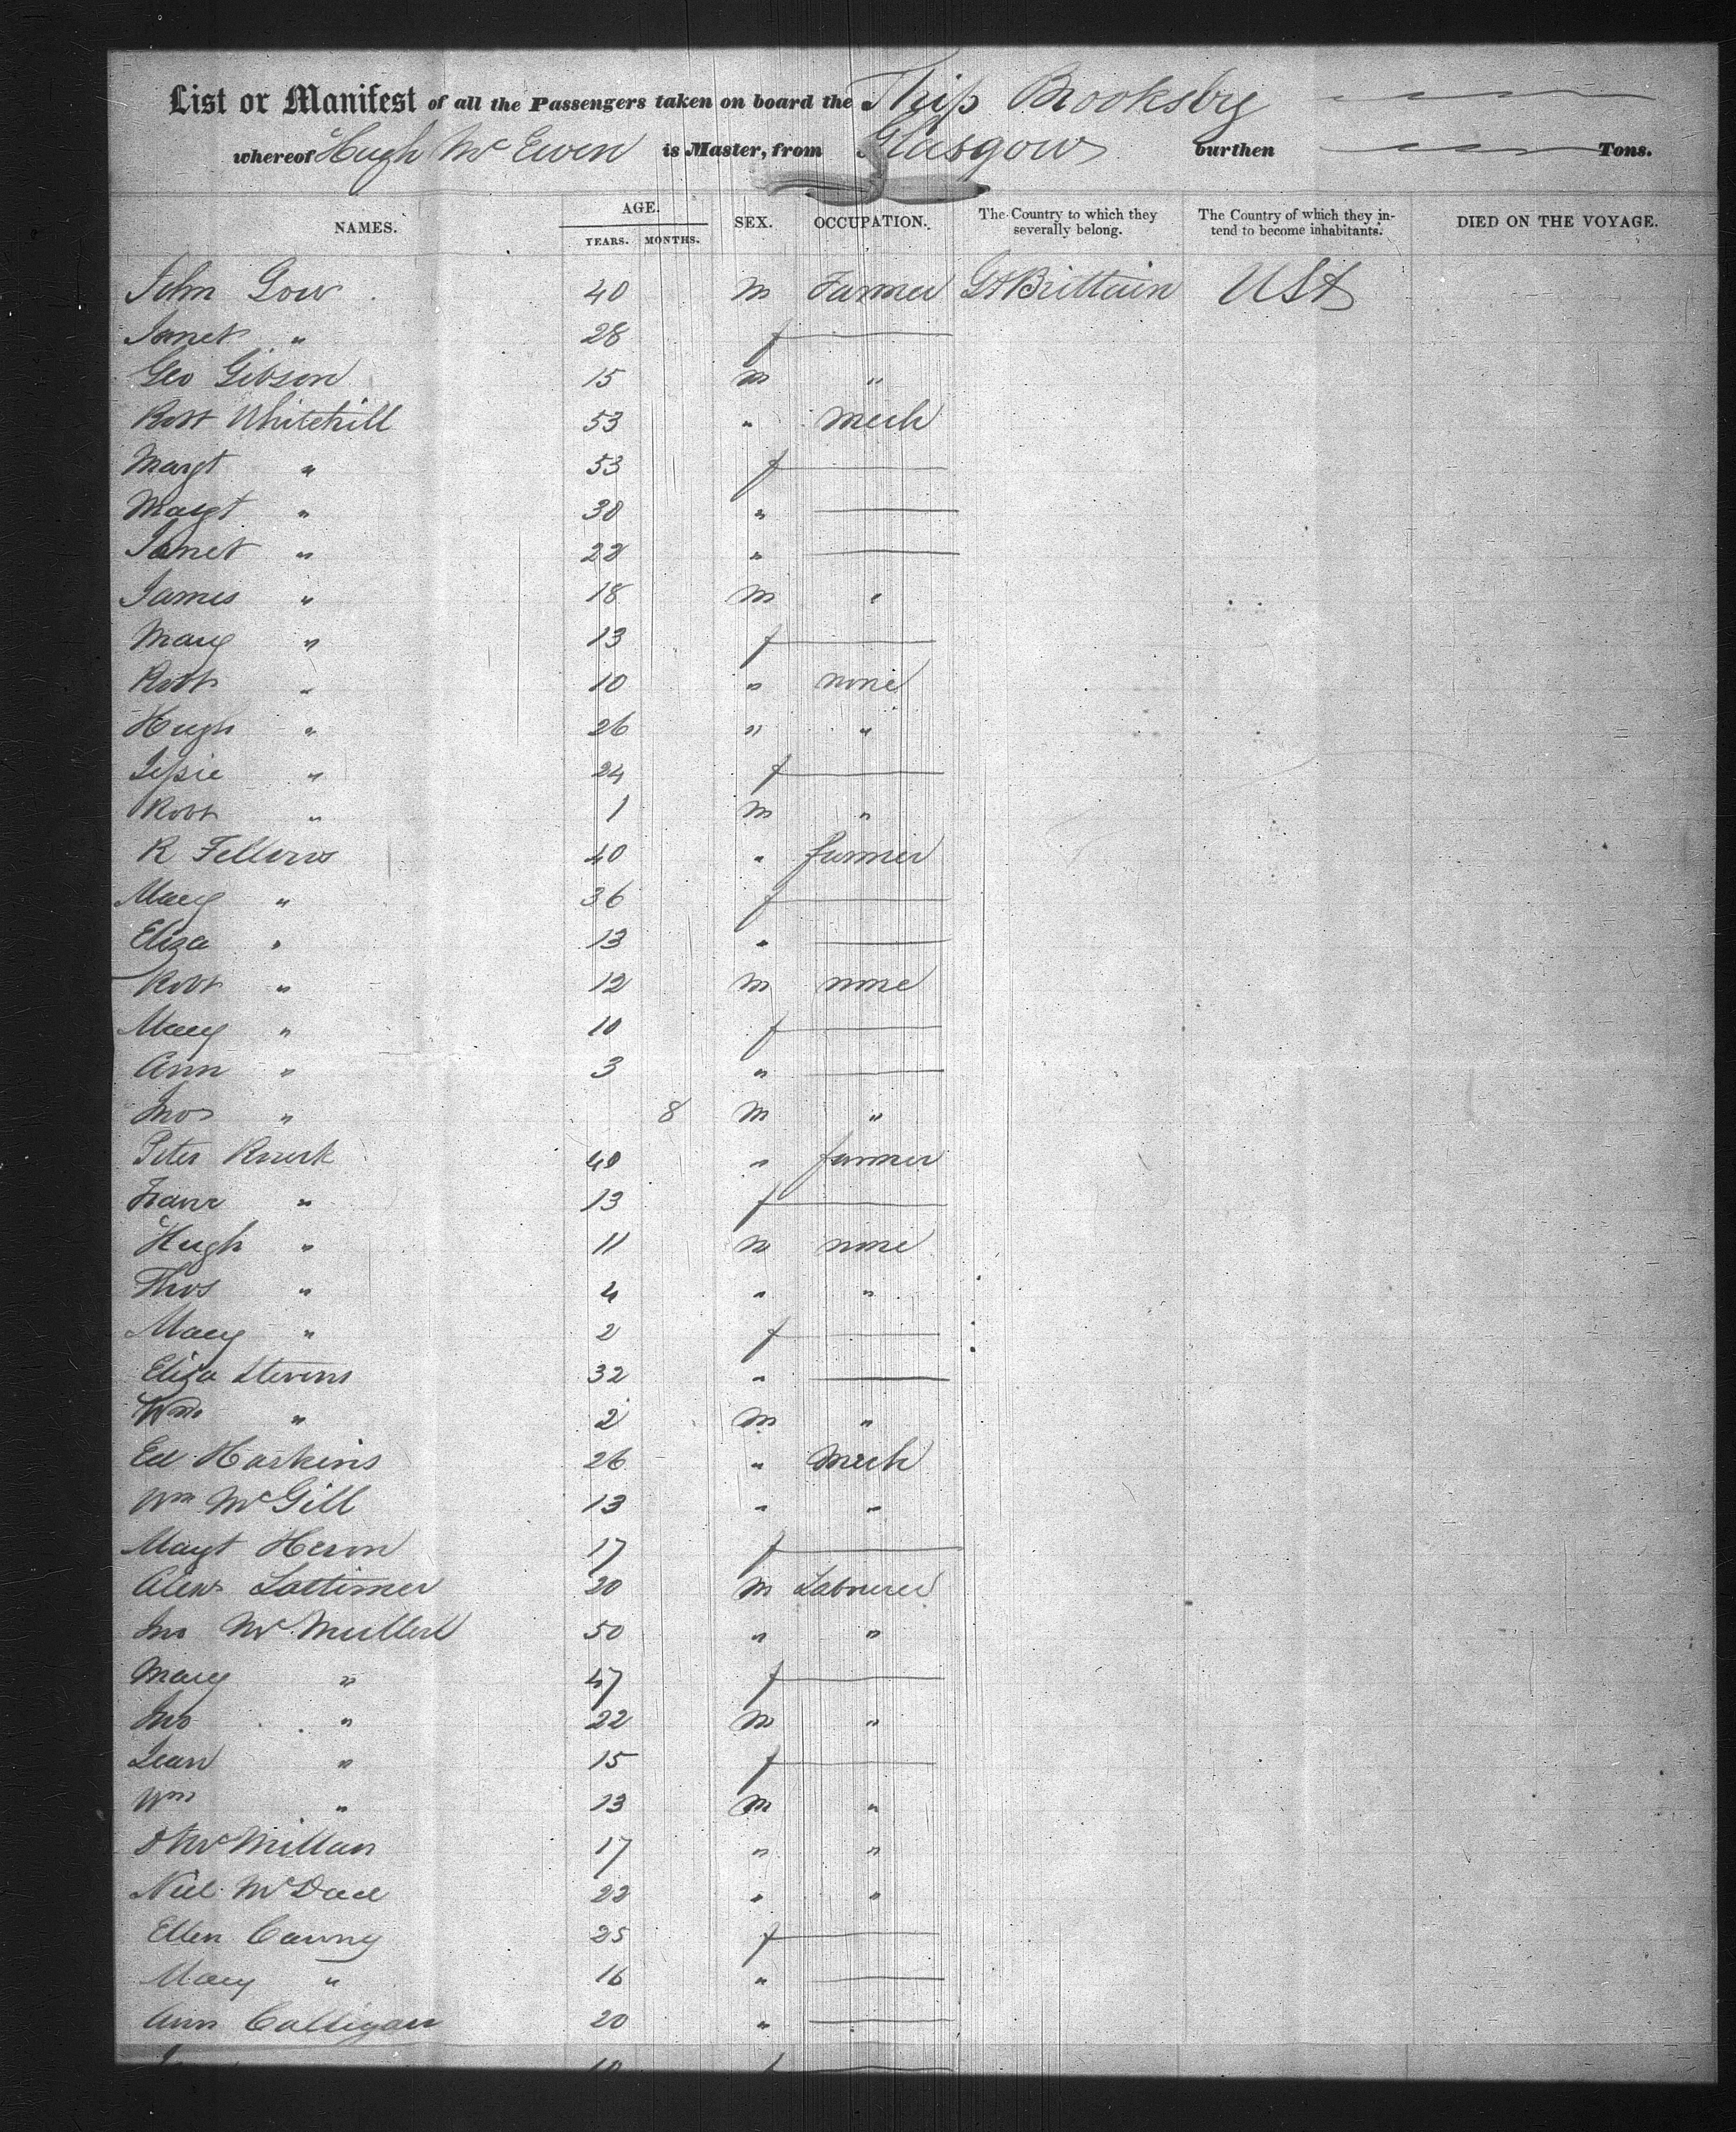 List or Manifest of all the Passengers taken on board the Ship Brooksby
whereof Hugh McEwen is Master, from Glasgow burthen Tons.
NAMES. AGE. YEARS. MONTHS. SEX. OCCUPATION. The Country to which they severally belong. The Country of which they intend to become inhabitants. DIED ON THE VOYAGE.
John Gow 40 m Farmer Gt Brittain USA
Janet " 28 f
Geo Gibson 15 m "
Robt Whitehill 53 " mech
Margt " 53 f
Margt " 30 "
Janet " 22 "
James " 18 m "
Mary " 13 f
Robt " 10 " none
Hugh " 26 " "
Jessie " 24 f
Robt " 1 m "
R Fellows 40 " farmer
Mary " 36 f
Eliza " 13 "
Robt " 12 m none
Mary " 10 f
Ann " 3 "
Jno " 8 m "
Peter 40 " farmer
" 13 f
Hugh " 11 m none
Thos " 4 " "
Mary " 2 f
Eliza Stevens 32 "
Wm " 2 m "
Ed Harkins 26 " mech
Wm McGill 13 " "
Magt Heron 17 f
Alexr Lattimer 20 m Labourer
Jno McMullen 50 " "
Mary " 47 f
Jno " 22 m "
Jean " 15 f
Wm " 13 m "
D McMillan 17 " "
Niel 22 " "
Ellen Canny 25 f
Mary " 16 "
Ann Calligan 20 "